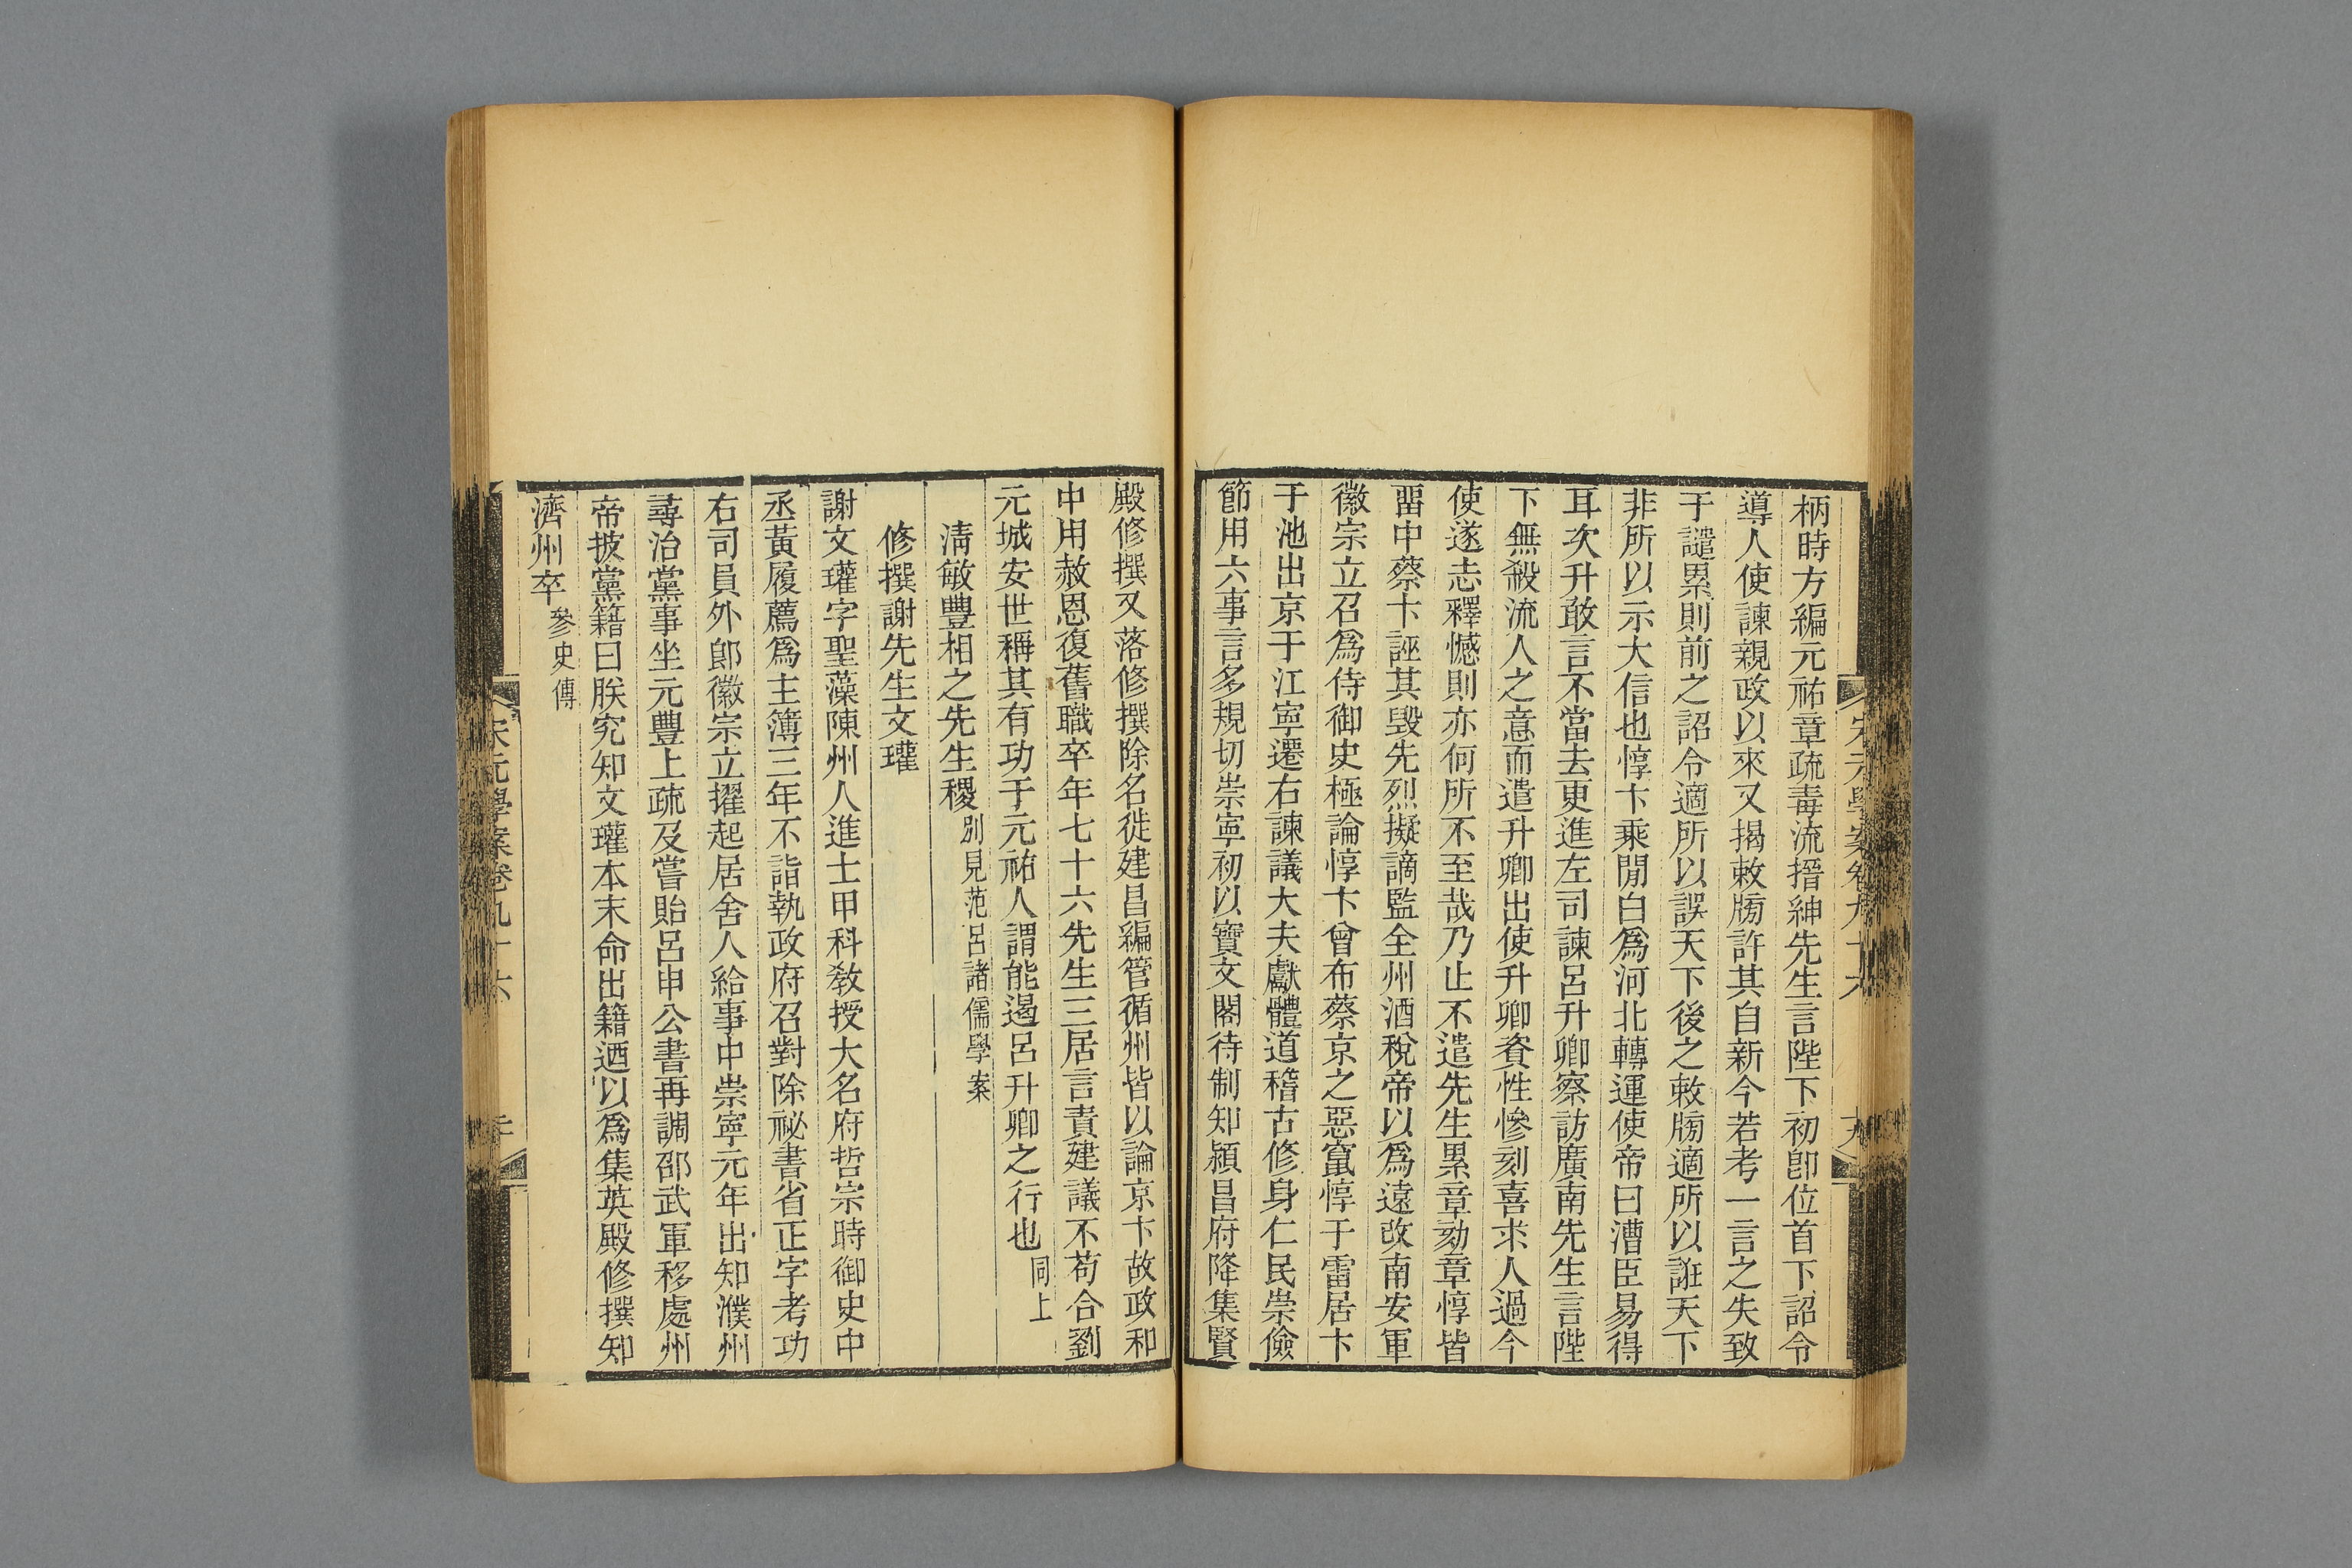 柄時方編元祐章疏毒流搢紳先生言陛下初卽位首下詔令
導人使諫親政以來又揭敕牓許其自新今若考一言之失致
于譴累則前之詔令適所以誤天下後之敕牓適所以誑天下
非所以示大信也惇卞乘閒白爲河北轉運使帝曰漕臣易得
耳次升敢言不當去更進左司諫呂升卿察訪廣南先生言陛
下無殺流人之意而遣升卿出使升卿資性慘刻喜求人過今
使遂志釋憾則亦何所不至哉乃止不遣先生累章劾章惇皆
畱中蔡卞誣其毀先烈擬謫監全州酒稅帝以爲遠改南安軍
徽宗立召爲侍御史極論惇卞曾布蔡京之惡竄惇于雷居卞
于池出京于江寧遷右諫議大夫獻體道稽古修身仁民崇儉
節用六事言多規切崇寧初以寶文閣待制知潁昌府降集賢
殿修撰又落修撰除名徙建昌編管循州皆以論京卞故政和
中用赦恩復舊職卒年七十六先生三居言責建議不苟合劉
元城安世稱其有功于元祐人謂能遏呂升卿之行也同上
淸敏豐相之先生稷別見范呂諸儒學案
修撰謝先生文瓘
謝文瓘字聖藻陳州人進士甲科敎授大名府哲宗時御史中
丞黃履薦爲主簿三年不詣執政府召對除祕書省正字考功
右司員外郞徽宗立擢起居舍人給事中崇寧元年出知濮州
尋治黨事坐元豐上疏及嘗貽呂申公書再調邵武軍移處州
帝披黨籍曰朕究知文瓘本末命出籍迺以爲集英殿修撰知
濟州卒參史傳
宋元學案卷九十六